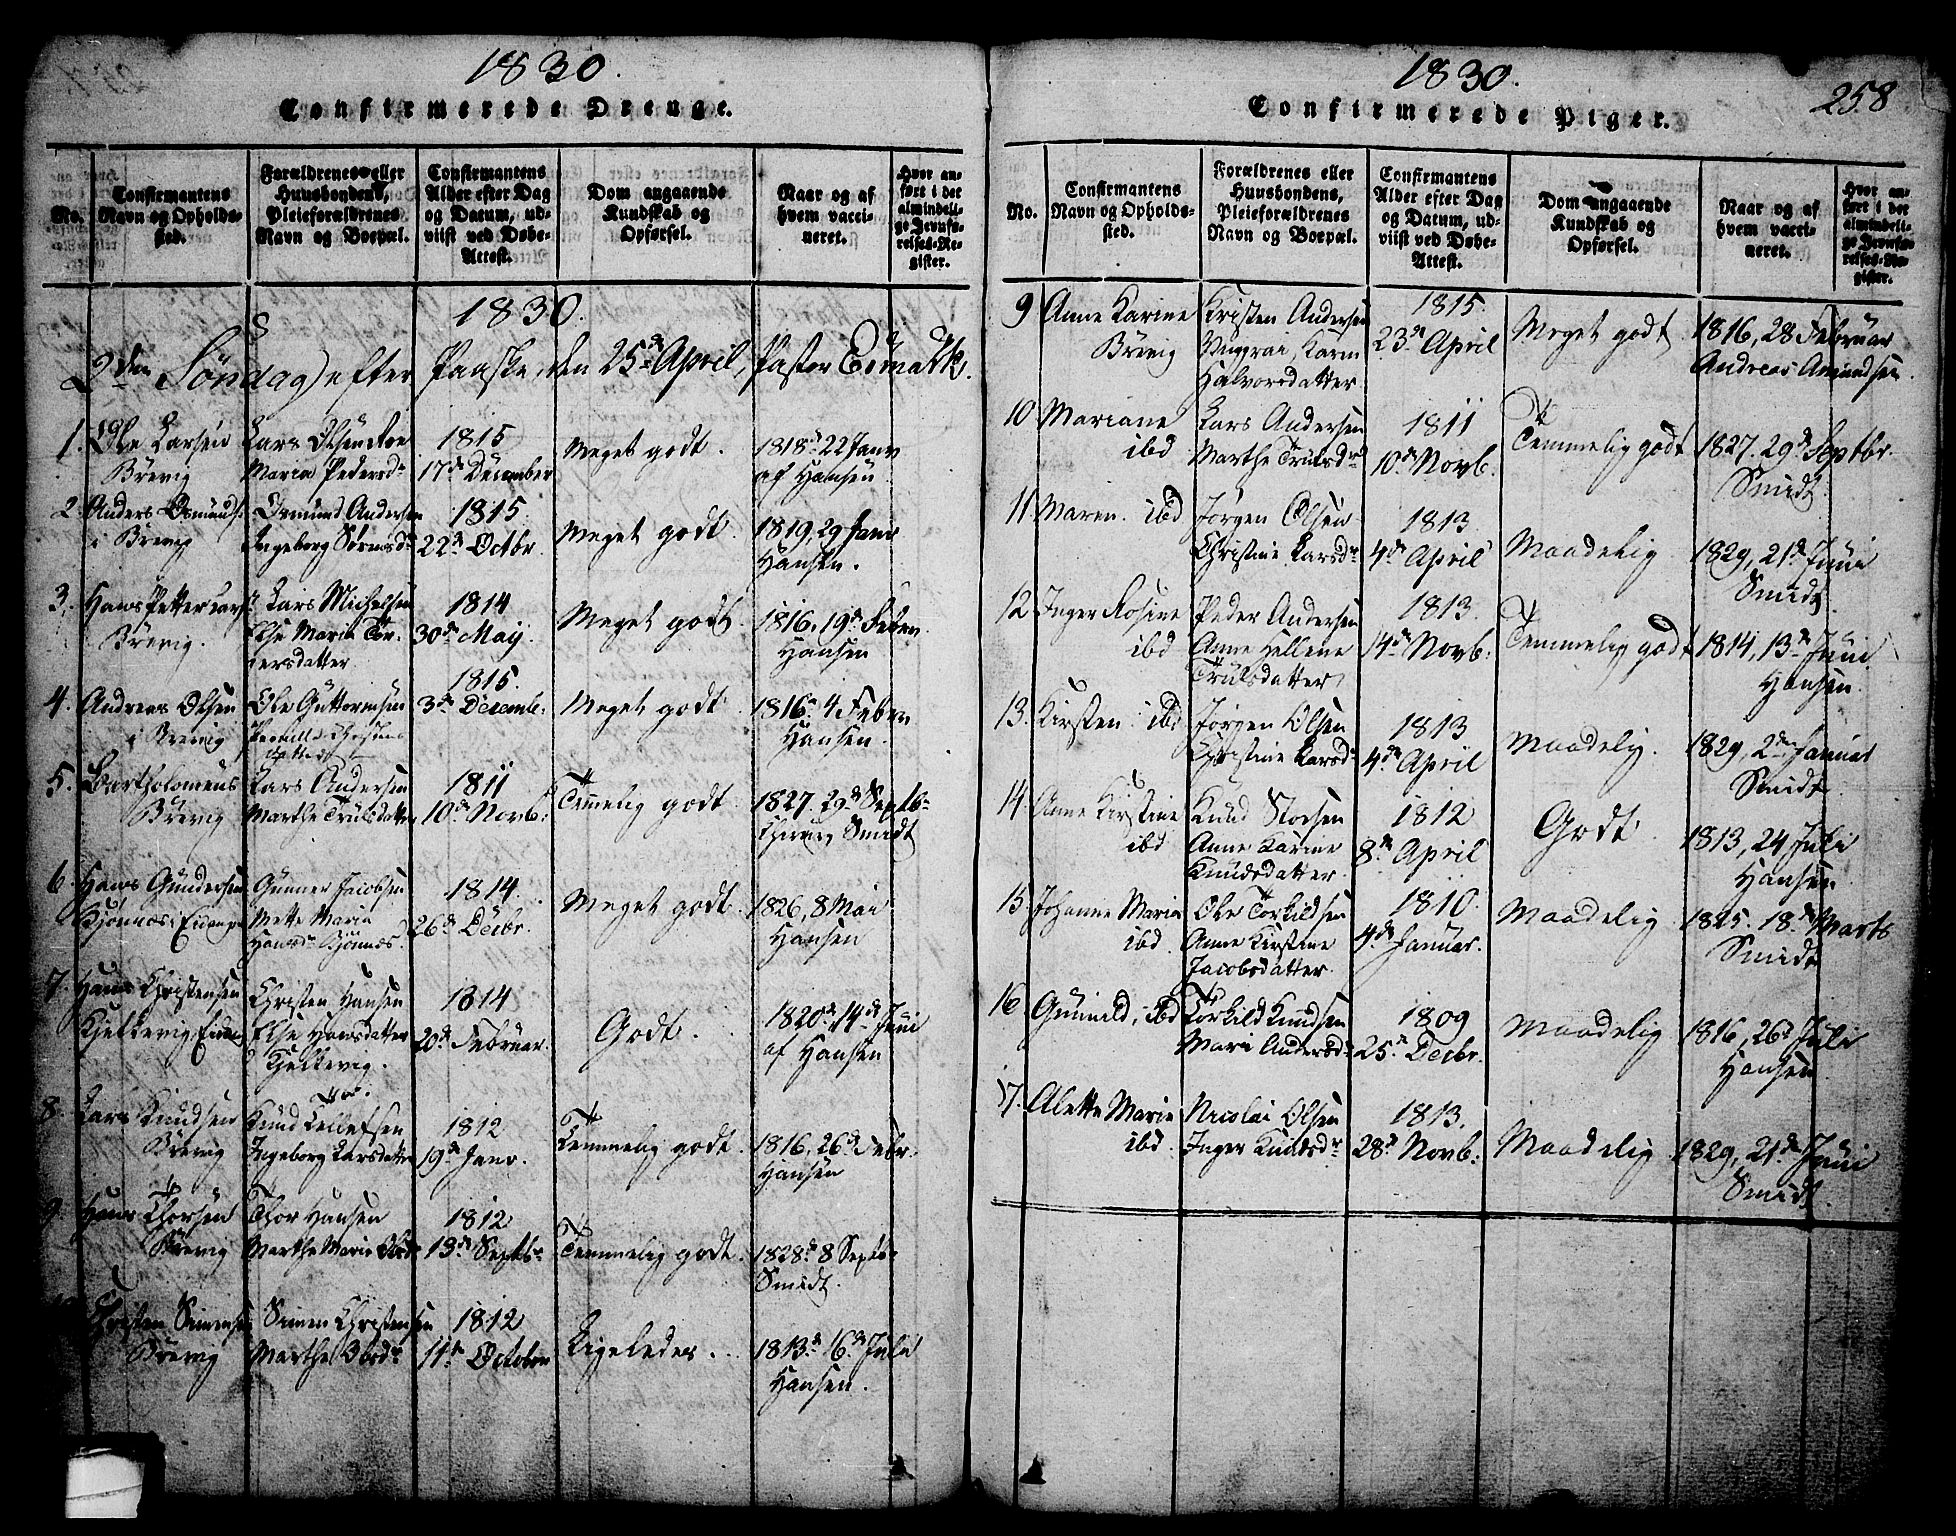 1830.
Confirmerede Drenge.
No.
Confirmantens Navn og Opholdssted.
Forældrenes eller Huusbondens, Pleieforældrenes Navn og Boepæl.
Confirmantens Alder efter Dag og Datum, udviist ved Døbe-Attest.
Dom angaaende Kundskab og Opførsel.
Naar og af hvem vaccineret.
Hvor anført i det almindelige Jevnførelses-Register.
1830.
2den Søndag efter Paaske, den 25de April, Pastor
1. Ole Larsen
Brevig
Lars Olsen
Maria Pedersdr
1815
17de December
Meget godt.
1818 22 Janv
af Hansen
2 Anders Osmunds:
i Brevig
Osmund Andersen
Ingeborg Sørensdr
1815.
22de Octbr.
Meget godt.
1819, 29 Janv
Hansen.
3. Hans Petter Lars:
Brevig.
Lars Michelsen
Else Maria Tor-
dersdatter
1814
30de Maij.
Meget godt.
1816, 19de Febr.
Hansen
4. Andreas Olsen
i Brevig
Ole Guttormsen
Pernille Christens
datter
1815.
3de Decemb:
Meget godt
1816 4 Febr
Hansen.
5. Bartholomeus
Brevig
Lars Andersen
Marthe Trulsdatter
1811
10de Novb:
Temmelig godt
1827. 29de Septb
Smidt
6. Hans Gundersen
Bjønnes i Eidanger
Gunner Jacobsen
Mette Maria
Hansdr Bjønnes.
1814.
26de Decbr.
Meget godt.
1826, 8 Mai
Hansen
7. Hans Christensen
Kjelkevig, Eidang
Christen Hansen
Else Hansdatter
Kjelkevig.
1814
20de Februar.
Godt.
1820, 14de Juni
af Hansen
8. Lars Knudsen
Brevig
Knud Tellefsen
Ingeborg Larsdatter
1812
19de Janv.
Temmelig godt.
1816, 26de Febr.
Hansen
9. Hans Thorsen
Brevig
Thor Hansen
Marthe Marie Olsdr
1812
13de Septb
Temmelig godt.
1828 8 Septb
Smidt.
Christen Simensen
Brevig
Simen Christensen
Marthe Olsdr
1812
11te October
Ligeledes.
1813 16de Juli
Hansen.
1830.
258
Confirmerede Piger.
No.
Confirmantens Navn og Opholdssted.
Forældrenes eller Huusbondens, Pleieforældrenes Navn og Boepæl.
Confirmantens Alder efter Dag og Datum, udviist ved Døbe-Attest.
Dom angaaende Kundskab og Opførsel.
Naar og af hvem vaccineret.
Hvor anført i det almindelige Jevnførelses-Register.
9 Anne Karine
Brevig
Kristen Andersen
Karen
Halvorsdatter
1815.
23de April
Meget godt
1816, 28 Februar
Andreas Amundsen.
10 Mariane
ibd
Lars Andersen
Marthe Trulsdr
1811
10de Novb.
Temmelig godt
1827. 29de Septbr.
Smidt
11 Maren. ibd
Jørgen Olsen
Christine Larsdr
1813
4de April
Maadelig
1829, 21de Juni
Smidt
12 Inger Rosine
ibd
Peder Andersen
Anne Hellene
Trulsdatter
1813.
14de Novb:
Temmelig godt
1814, 13de Juni
Hansen.
13. Kirsten ibd
Jørgen Olsen
Christine Larsdr
1813
4de April
Maadelig.
1829, 2den Januar
Smidt.
14. Anne Kirstine
ibd
Knud
Anne Karine
Knudsdatter.
1812
8de April
Godt
1813, 24 Juli
Hansen
15. Johanne Maria
ibd
Ole Torkildsen
Anne Kirstine
Jacobsdatter.
1810.
4de Januar.
Maadelig
1825. 18de Marts
Smidt
16 Gunnild, ibd
Torkild Knudsen
Mari Andersdr
1809
25de Decbr.
Maadelig
1816, 26de Juli
Hansen
17. Alette Marie
ibd.
Nicolai Olsen
Inger Knudsdr
1813.
28de Novb:
Maadelig
1829, 21de Juni
Smidt.